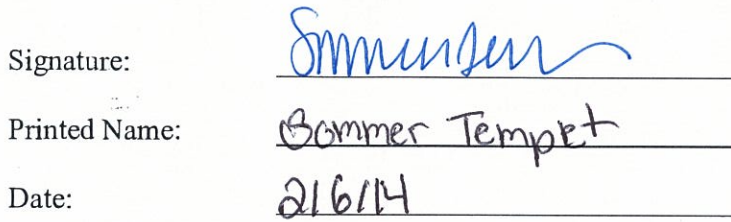 Signature:
Printed Name: Sommer Tempet
Date: 2/6/14